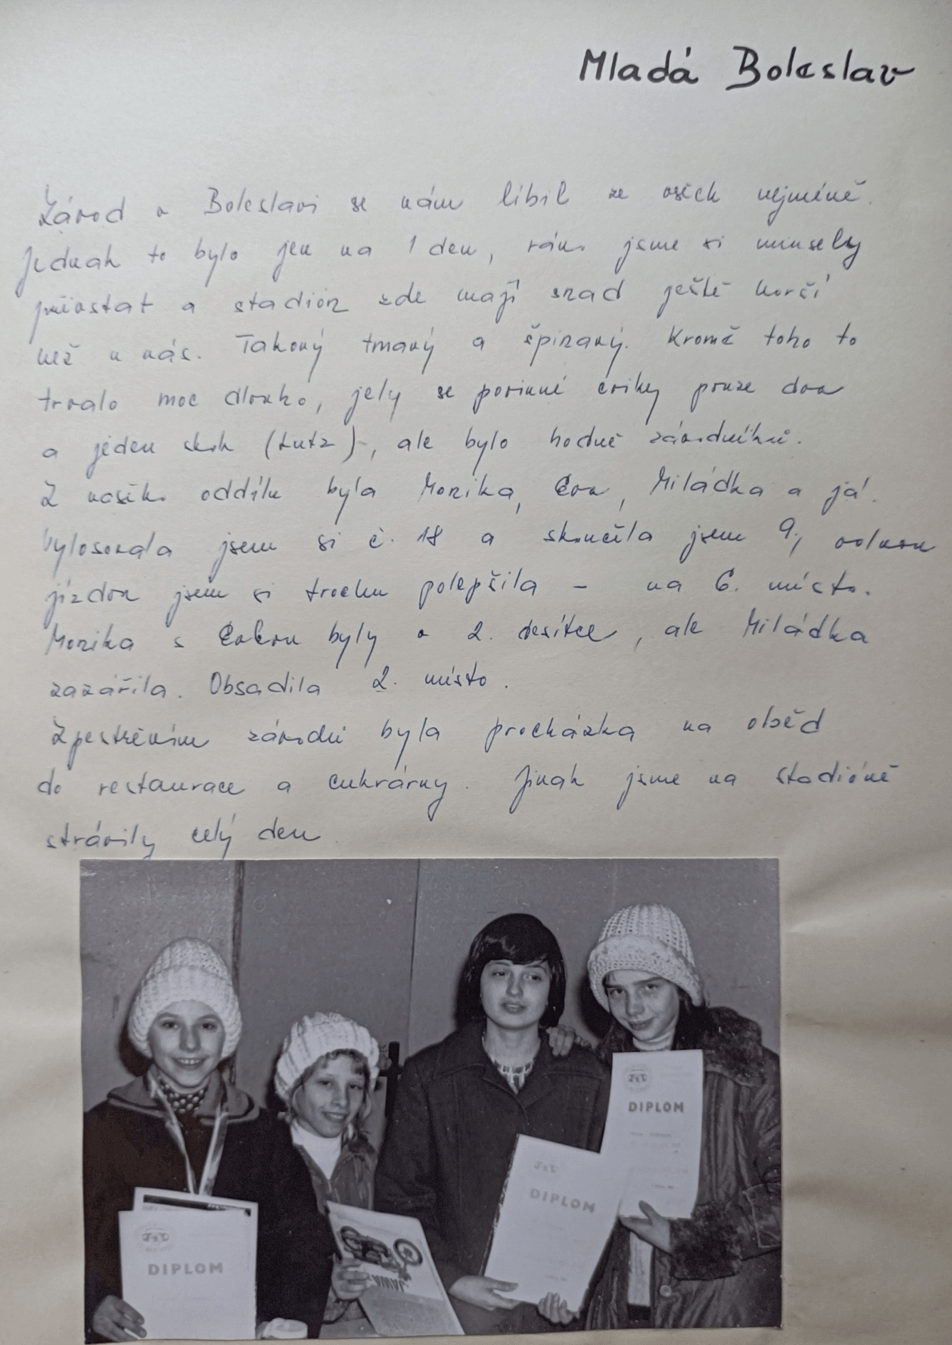 Mladá Boleslav
Závod v Boleslavi se nám líbil ze všech nejméně.
Jednak to bylo jen na 1 den, ráno jsme si musely
přivstat a stadión zde mají snad ještě horší
než u nás. Takový tmavý a špinavý. Kromě toho to
trvalo moc dlouho, jely se povinné cviky pouze dva
a jeden skok (Lutz), ale bylo hodně závodníků.
Z našeho oddílu byla Monika, Eva, Miládka a já.
Vylosovala jsem si č. 18 a skončila jsem 9, volnou
jízdou jsem si trochu polepšila – na 6. místo.
Monika s byly v 2. desítce, ale Miládka
zazářila. Obsadila 2. místo.
Zpestřením závodů byla procházka na oběd
do restaurace a cukrárny. Jinak jsme na stadióně
strávily celý den
DIPLOM
DIPLOM
DIPLOM
JAWA